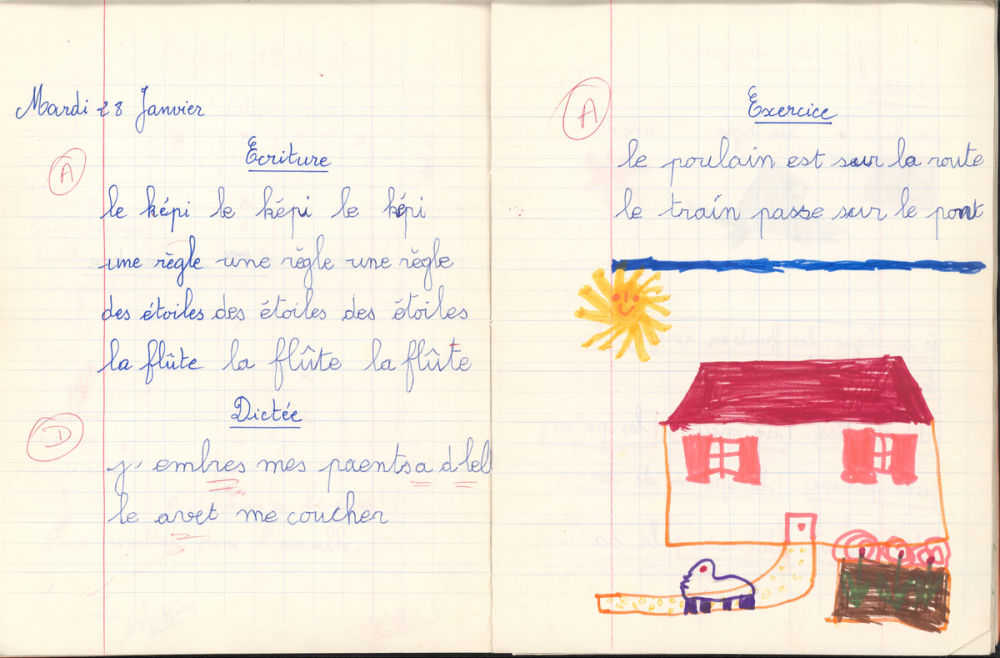 Mardi 28 Janvier
A
Ecriture
le képi le képi le képi
une règle une règle une règle
des étoiles des étoiles des étoiles
la flûte la flûte la flûte
Dictée
D
j' embres mes paents a d lell
le avet me coucher
A
Exercice
le poulain est sur la route
le train passe sur le pont